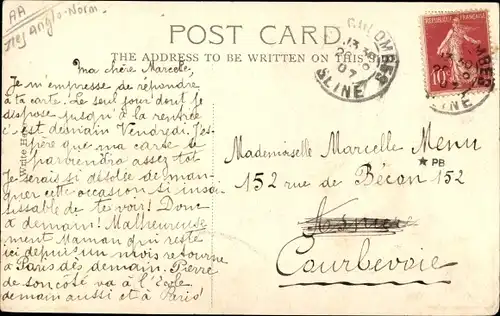 AA
Iles Anglo-Norm.
POST CARD.
THE ADDRESS TO BE WRITTEN ON THIS
COLOMBES
13 30
26 9
07
SEINE
RÉPUBLIQUE FRANÇAISE
10
ma chère Marcelle,
Je m'empresse de répondre
à ta carte. Le seul jour dont je
dispose jusqu'à la rentrée
c'est demain Vendredi. J'es-
père que ma carte te
parviendra assez tôt
Je serais si désolée de man-
quer cette occasion si insai-
sissable de te voir! Donc
à demain! Malheureuse
ment Maman qui reste
ici depuis un mois retourne
à Paris dès demain. Pierre
de son côté va à l'École
demain aussi et à Paris
Write He
Mademoiselle Marcelle Menu
★ PB
152 rue de Bécon 152
Courbevoie